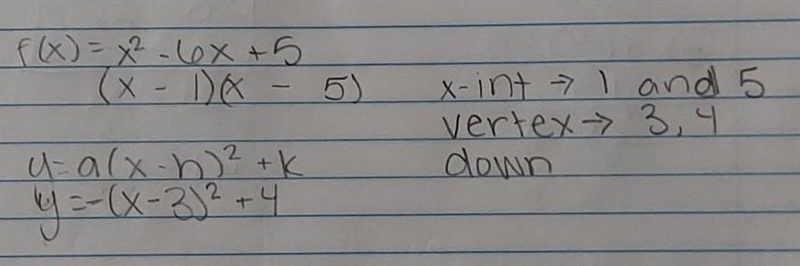 f(x) = x² - 6x + 5
(x - 1)(x - 5)
x-int → 1 and 5
vertex → 3, 4
down
y = a(x - h)² + k
y = -(x - 3)² + 4